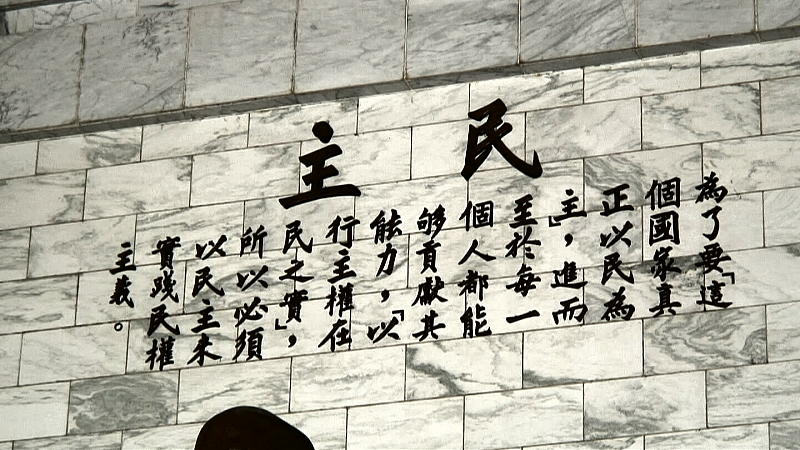 民主
為了要「這
個國家真
正以民為
主」,進而
至於每一
個人都能
够貢獻其
能力,「以
行主權在
民之實」,
所以必須
以民主來
實踐民權
主義。